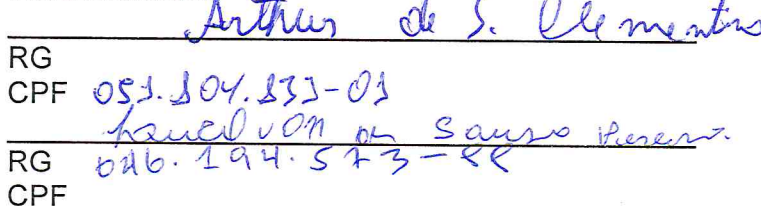 Arthur de S. Clementino
RG
CPF 051.104.133-01
de Sousa
RG 046.194.573-88
CPF